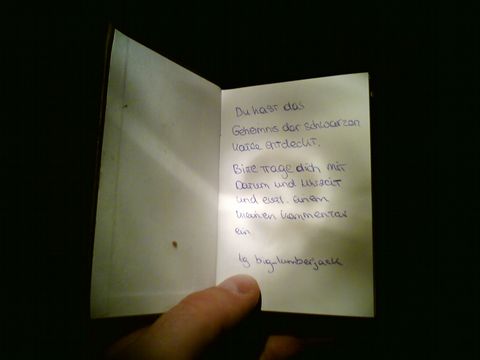 Du hast das
Geheimnis der schwarzen
Kasse entdeckt.
Bitte trage dich mit
Datum und Uhrzeit
und evtl. einem
kleinen Kommentar
ein
lg big-lumberjack